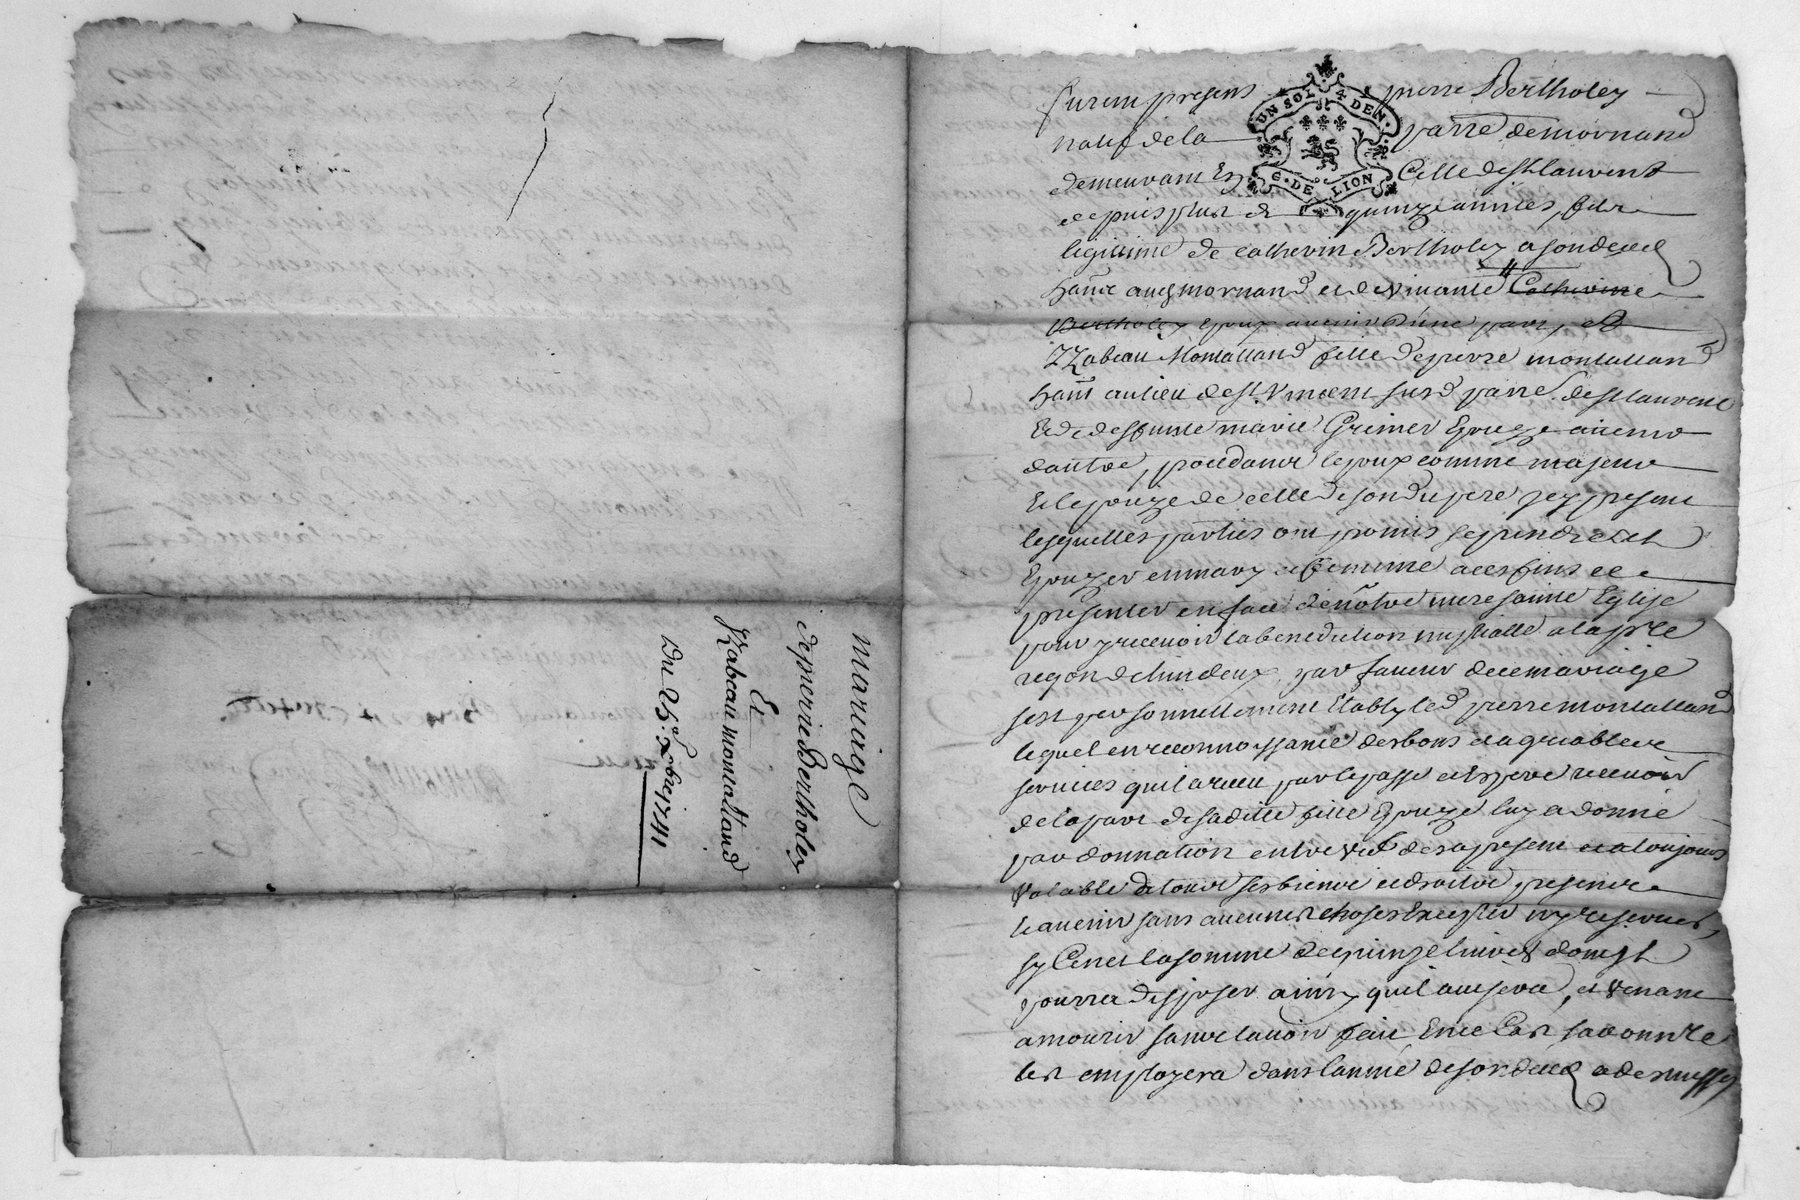 mariage
de pierre Bertholey
Et
Yzabeau montalland
Du 25e. xbre 1741
UN SOL 4 DEN.
G. DE LION
furent presens pierre Bertholey
natif de la parre de mornand
demeurant En Celle de St laurent
depuis plus de quinze années, fils
legitime de catherin Bertholey a son deced
hant aud mornand et de vivante Catherine
Bertholey Epoux avenir d'une part, Et
Yzabeau Montalland fille de pierre montalland
hant au lieu de St. Vincent sur d parre. de St laurent
Et de deffunte marie Grimer Epouze avenir
d'autre, procedants lepoux comme majeur
Et lepouze de celle de son du pere icy present
lesquelles parties ont promis se prendre et
Epouzer en mary et femme a ces fins se
presenter en face de notre mere sainte Eglise
pour y recevoir la benediction nuptialle a la pre
reqon de lun deux, par faveur de ce mariage
sest personnellement Etably led pierre montalland
lequel en reconnoissance des bons et agreables
services quil a receu par le passé et Espere recevoir
de la part de sa ditte fille Epouze luy a donné
par donnation entre vifs des a present et a toujours
valable de tous ses biens et droits presents
Et avenir sans aucunes choses Excepter ny reserver,
sy Ce nest la somme de quinze livres dont Il
pourra disposer ainsy quil avisera, et venant
a mourir sans lavoir fait En ce Cas sa donnre
les employera dans lannée de son deced a des messes